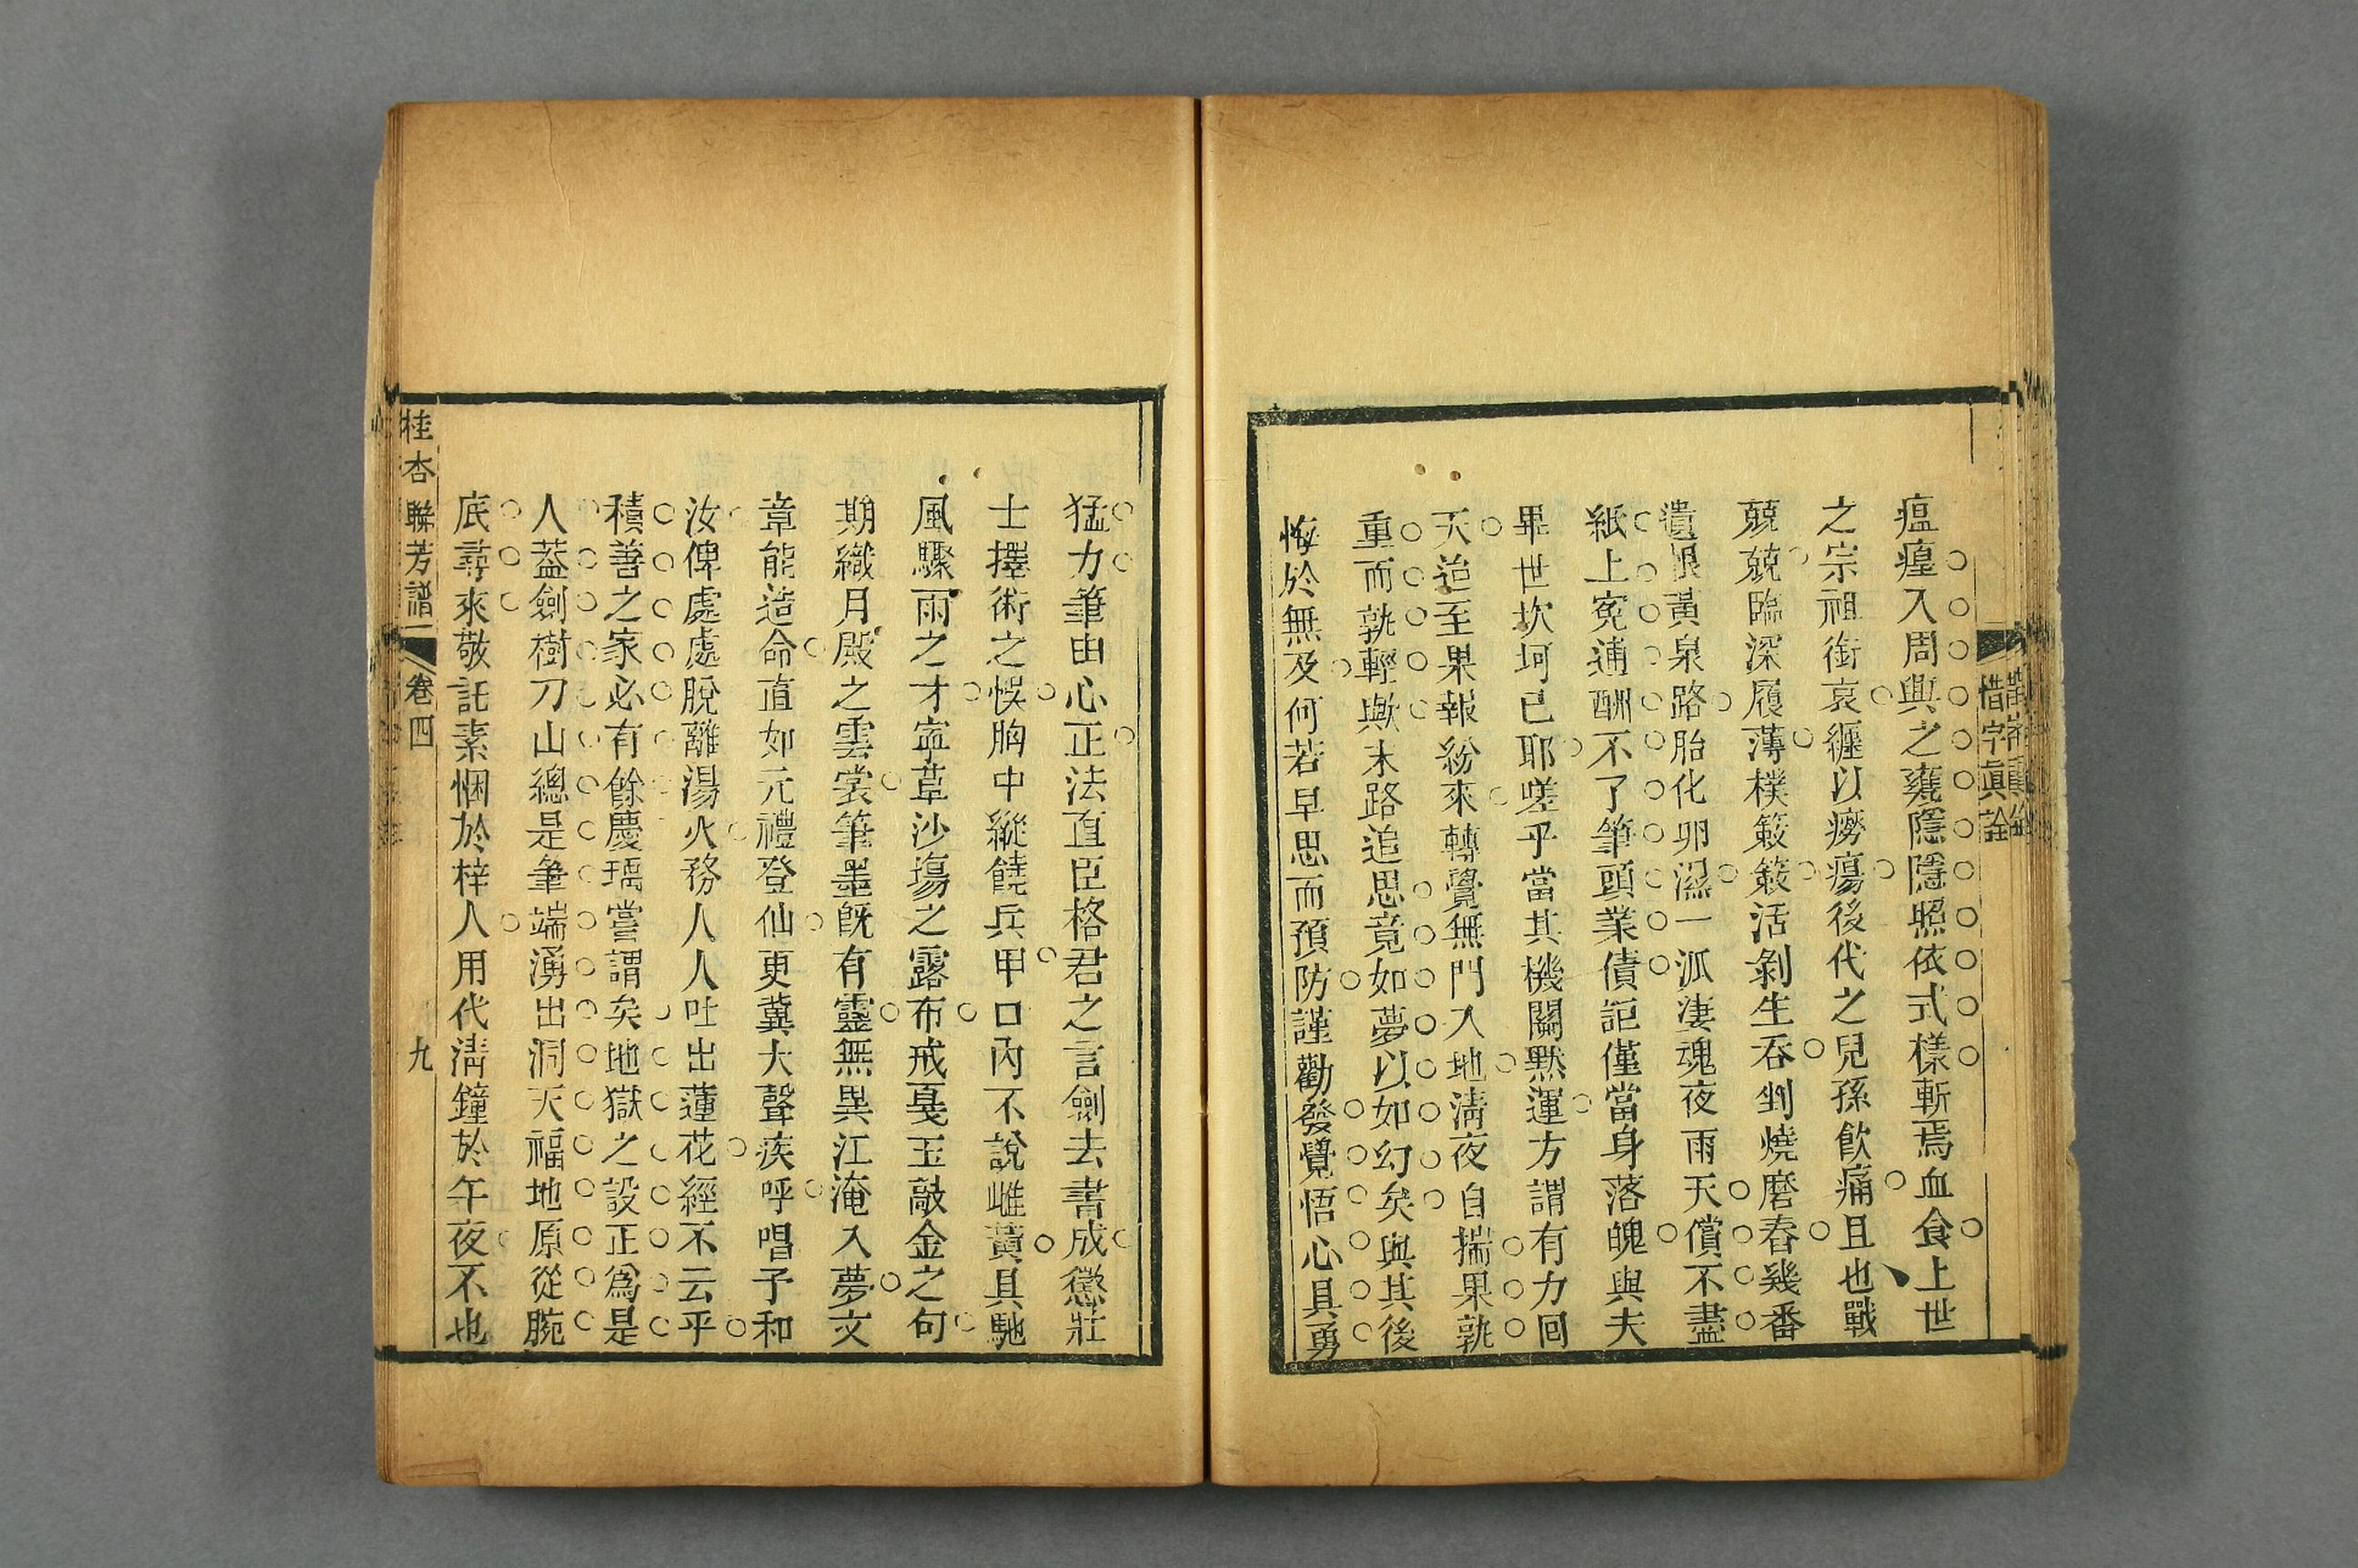 惜字眞詮
瘟瘽入周與之甕隱隱照依式樣斬焉血食上世
之宗祖銜哀纏以癆瘍後代之兒孫飲痛且也戰
兢兢臨深履薄樸簌簌活剝生吞剉燒磨舂幾番
遺恨黃泉路胎化卵濕一派淒魂夜雨天償不盡
紙上冤逋酬不了筆頭業債詎僅當身落魄與夫
畢世坎坷已耶嗟乎當其機關黙運方謂有力囘
天迨至果報紛來轉覺無門入地清夜自揣果孰
重而孰輕歟末路追思竟如夢以如幻矣與其後
悔於無及何若早思而預防謹勸發覺悟心具勇
猛力筆由心正法直臣格君之言劍去書成懲壯
士擇術之悞胸中縱饒兵甲口內不說雌黃具馳
風驟雨之才寍草沙塲之露布戒戞玉敲金之句
期織月殿之雲裳筆墨旣有靈無異江淹入夢文
章能造命直如元禮登仙更冀大聲疾呼唱予和
汝俾處處脫離湯火務人人吐出蓮花經不云乎
積善之家必有餘慶瑀嘗謂矣地獄之設正爲是
人蓋劍樹刀山總是筆端湧出洞天福地原從腕
底尋來敬託素悃於梓人用代清鐘於午夜不也
桂杏聯芳譜 卷四 九